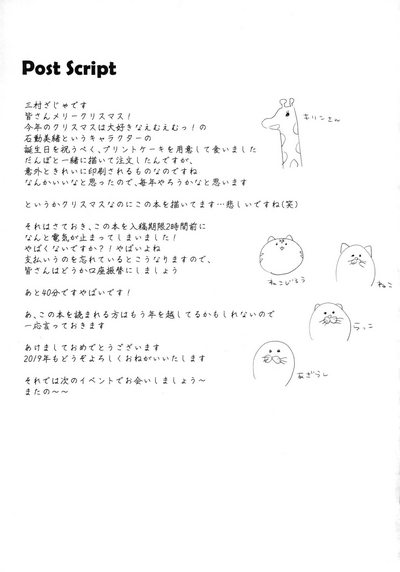 Post Script
三村ざじゃです
皆さんメリークリスマス！
今年のクリスマスは大好きなえむえむっ！の
石動美緒というキャラクターの
誕生日を祝うべく、プリントケーキを用意して食いました
だんぼと一緒に描いて注文したんですが、
意外ときれいに印刷されるものなのですね
なんかいいなと思ったので、毎年やろうかなと思います
というかクリスマスなのにこの本を描いてます…悲しいですね（笑）
それはさておき、この本を入稿期限2時間前に
なんと電気が止まってしまいました！
やばくないですか？！やばいよね
支払いうのを忘れているとこうなりますので、
皆さんはどうか口座振替にしましょう
あと40分ですやばいです！
あ、この本を読まれる方はもう年を越してるかもしれないので
一応言っておきます
あけましておめでとうございます
2019年もどうぞよろしくおねがいいたします
それでは次のイベントでお会いしましょう～
またの～～
きりんさん
ねこびろう
ねこ
らっこ
あざらし